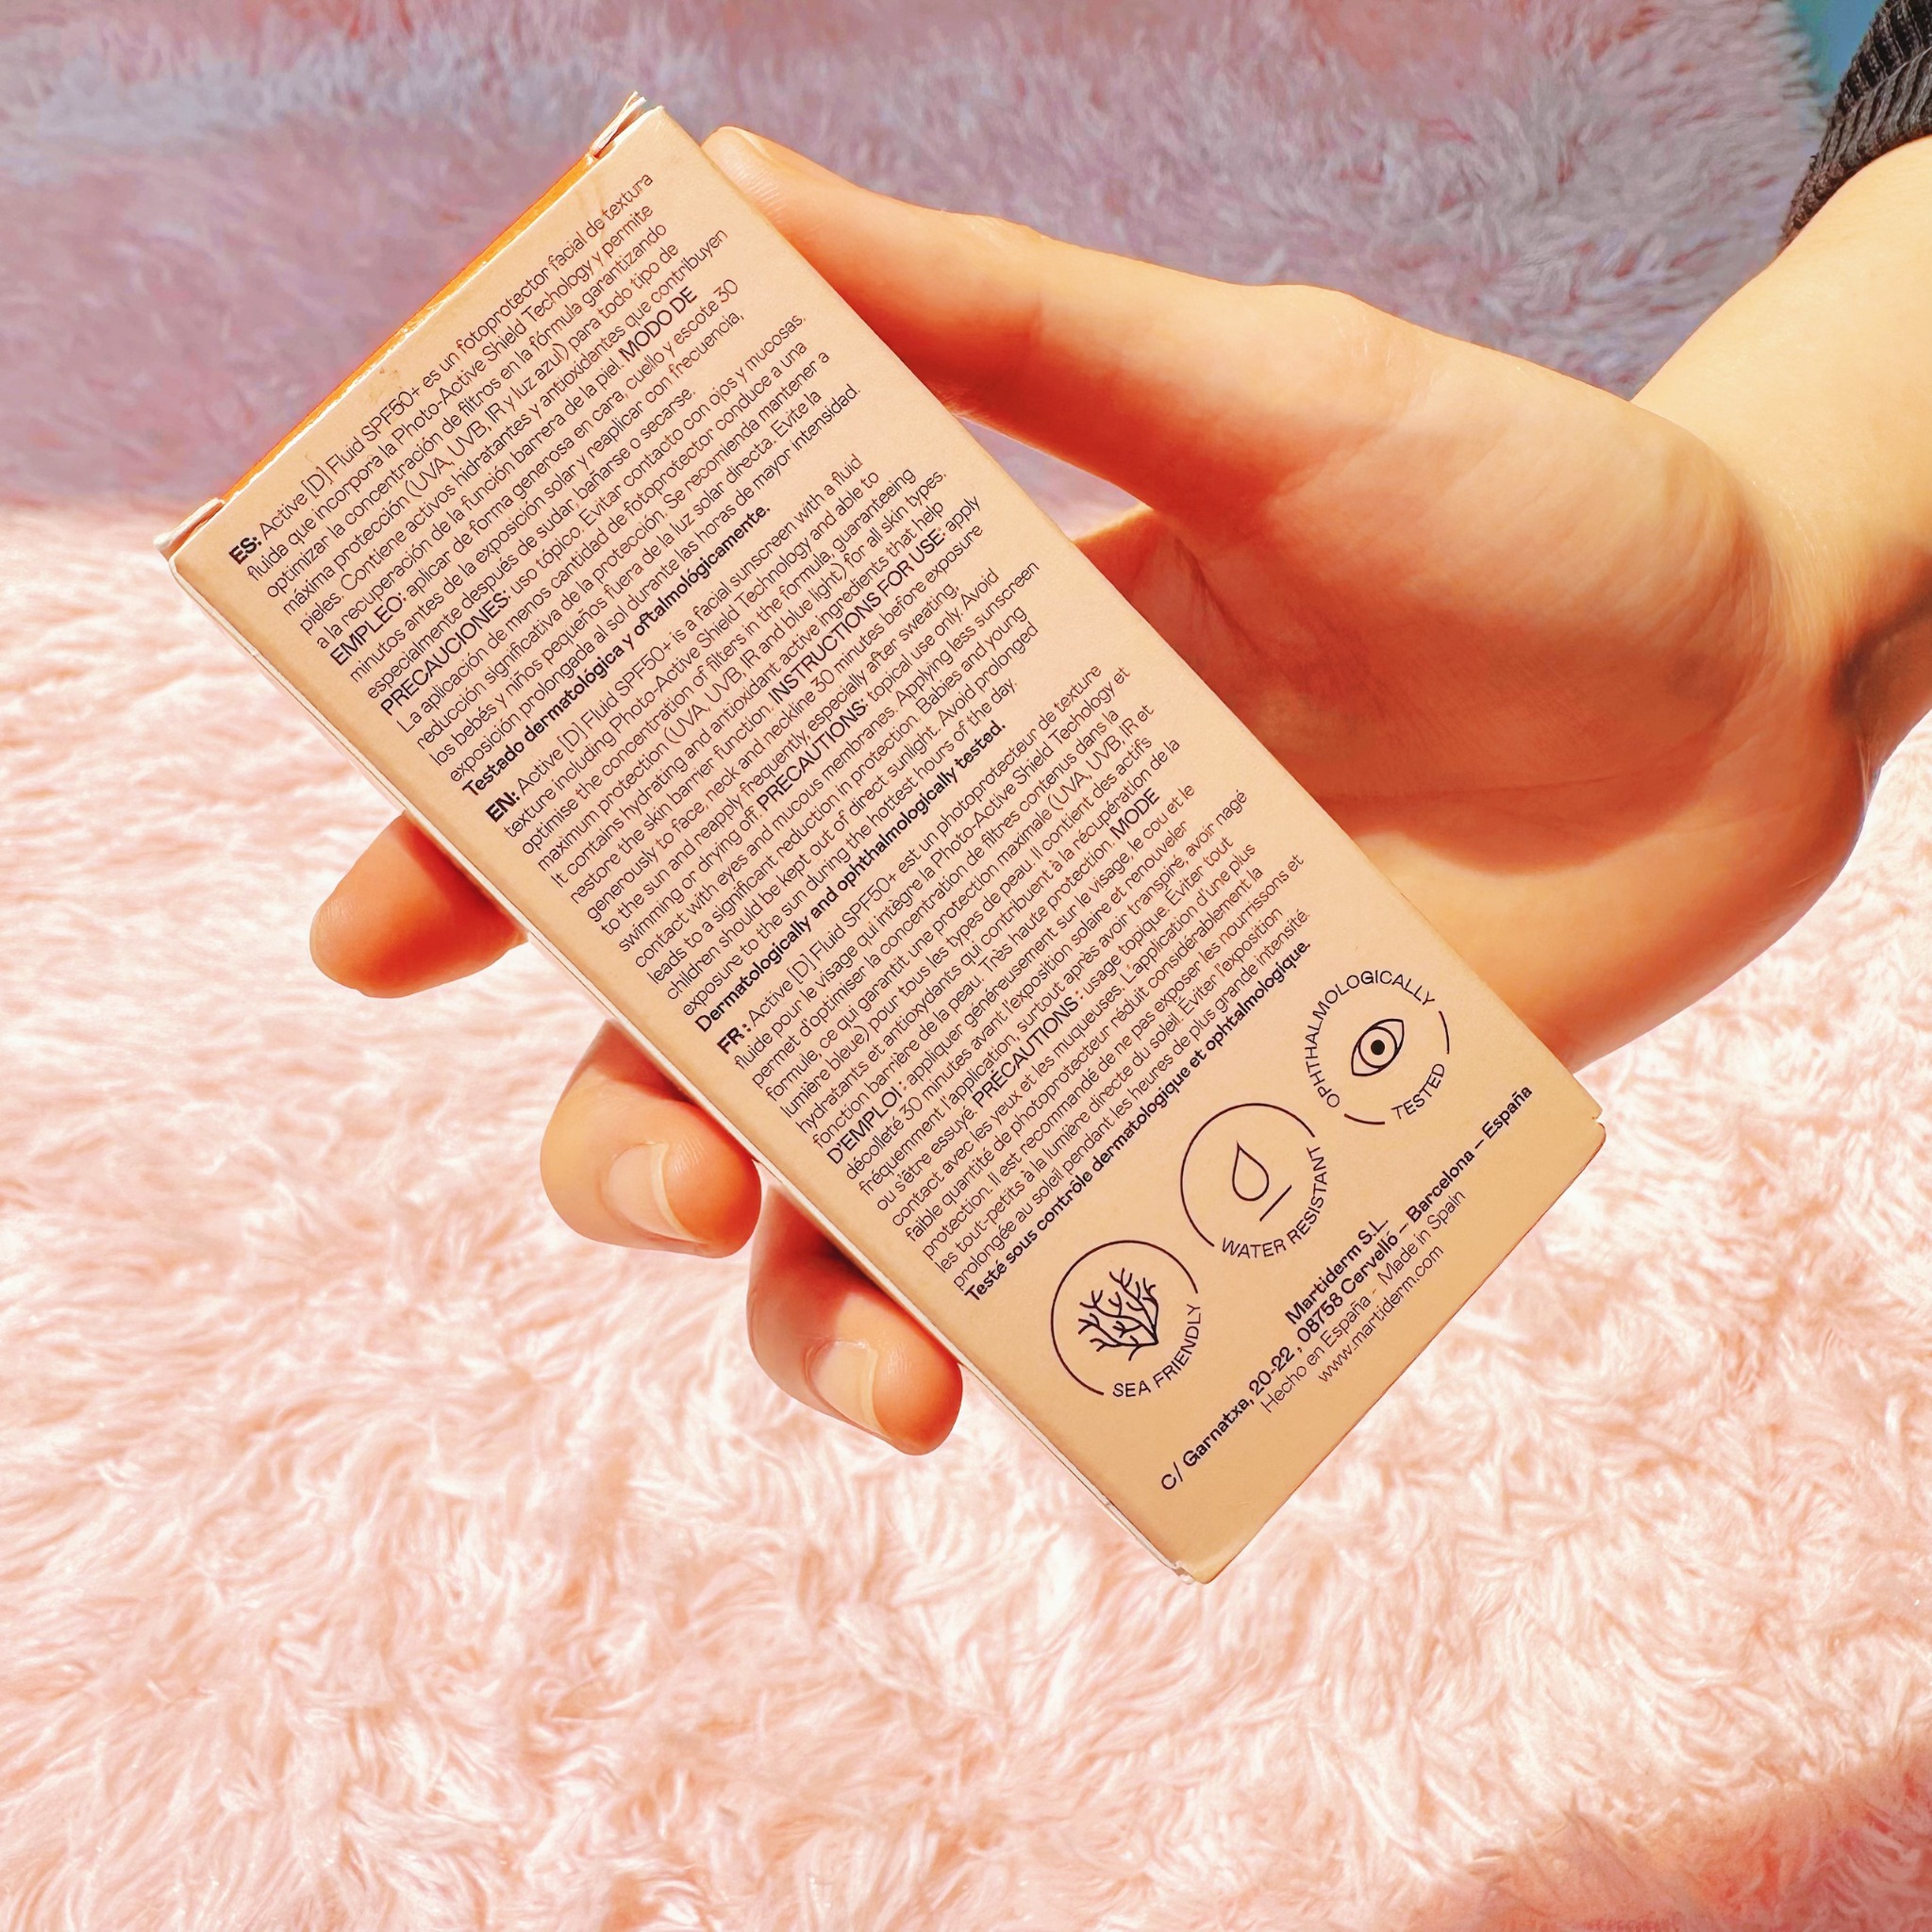 ES: Active [D] Fluid SPF50+ es un fotoprotector facial de textura
fluida que incorpora la Photo-Active Shield Techology y permite
optimizar la concentración de filtros en la fórmula garantizando
máxima protección (UVA, UVB, IR y luz azul) para todo tipo de
pieles. Contiene activos hidratantes y antioxidantes que contribuyen
a la recuperación de la función barrera de la piel. MODO DE
EMPLEO: aplicar de forma generosa en cara, cuello y escote 30
minutos antes de la exposición solar y reaplicar con frecuencia,
especialmente después de sudar, bañarse o secarse.
PRECAUCIONES: uso tópico. Evitar contacto con ojos y mucosas.
La aplicación de menos cantidad de fotoprotector conduce a una
reducción significativa de la protección. Se recomienda mantener a
los bebés y niños pequeños fuera de la luz solar directa. Evite la
exposición prolongada al sol durante las horas de mayor intensidad.
Testado dermatológica y oftalmológicamente.
EN: Active [D] Fluid SPF50+ is a facial sunscreen with a fluid
texture including Photo-Active Shield Technology and able to
optimise the concentration of filters in the formula, guaranteeing
maximum protection (UVA, UVB, IR and blue light) for all skin types.
It contains hydrating and antioxidant active ingredients that help
restore the skin barrier function. INSTRUCTIONS FOR USE: apply
generously to face, neck and neckline 30 minutes before exposure
to the sun and reapply frequently, especially after sweating,
swimming or drying off. PRECAUTIONS: topical use only. Avoid
contact with eyes and mucous membranes. Applying less sunscreen
leads to a significant reduction in protection. Babies and young
children should be kept out of direct sunlight. Avoid prolonged
exposure to the sun during the hottest hours of the day.
Dermatologically and ophthalmologically tested.
FR : Active [D] Fluid SPF50+ est un photoprotecteur de texture
fluide pour le visage qui intègre la Photo-Active Shield Technology et
permet d'optimiser la concentration de filtres contenus dans la
formule, ce qui garantit une protection maximale (UVA, UVB, IR et
lumière bleue) pour tous les types de peau. Il contient des actifs
hydratants et antioxydants qui contribuent à la récupération de la
fonction barrière de la peau. Très haute protection. MODE
D'EMPLOI : appliquer généreusement sur le visage, le cou et le
décolleté 30 minutes avant l'exposition solaire et renouveler
fréquemment l'application, surtout après avoir transpiré, avoir nagé
ou s'être essuyé. PRÉCAUTIONS : usage topique. Éviter tout
contact avec les yeux et les muqueuses. L'application d'une plus
faible quantité de photoprotecteur réduit considérablement la
protection. Il est recommandé de ne pas exposer les nourrissons et
les tout-petits à la lumière directe du soleil. Éviter l'exposition
prolongée au soleil pendant les heures de plus grande intensité.
Testé sous contrôle dermatologique et ophtalmologique.
SEA FRIENDLY
WATER RESISTANT
OPHTHALMOLOGICALLY TESTED
Martiderm S.L.
C/ Garnatxa, 20-22 , 08758 Cervelló – Barcelona – España
Hecho en España - Made in Spain
www.martiderm.com